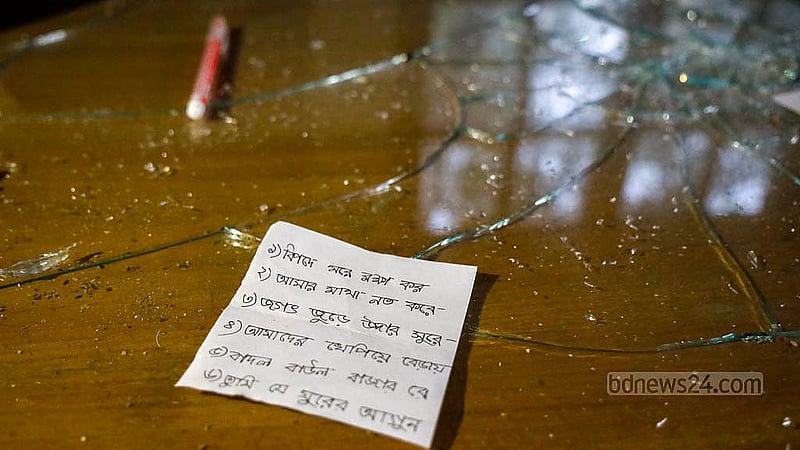 ১) বিপদে মোরে রক্ষা কর
২) আমার মাথা নত করে-
৩) জগৎ জুড়ে উদার সুরে-
৪) আমাদের খেপিয়ে বেড়ায়
৫) বাদল বাউল বাজায় রে
৬) তুমি যে সুরের আগুন
bdnews24.com